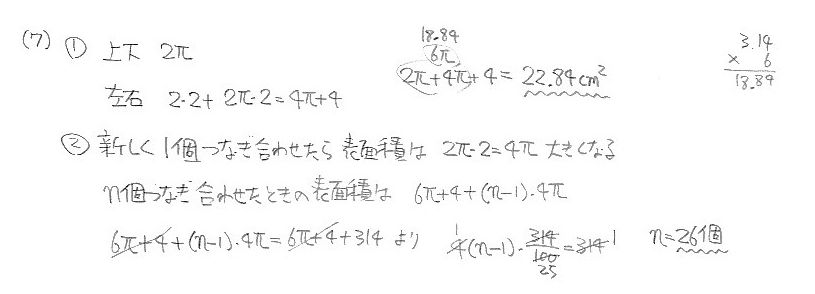 (7) ① 上下 2π
左右 2・2+2π・2=4π+4
18.84
6π
2π+4π+4=22.84cm²
3.14
× 6
18.84
② 新しく1個つなぎ合わせたら表面積は 2π・2=4π 大きくなる
n個つなぎ合わせたときの表面積は 6π+4+(n-1)・4π
6π+4+(n-1)・4π=6π+4+314 より 4(n-1)・314/100=314 n=26個
1 25 1